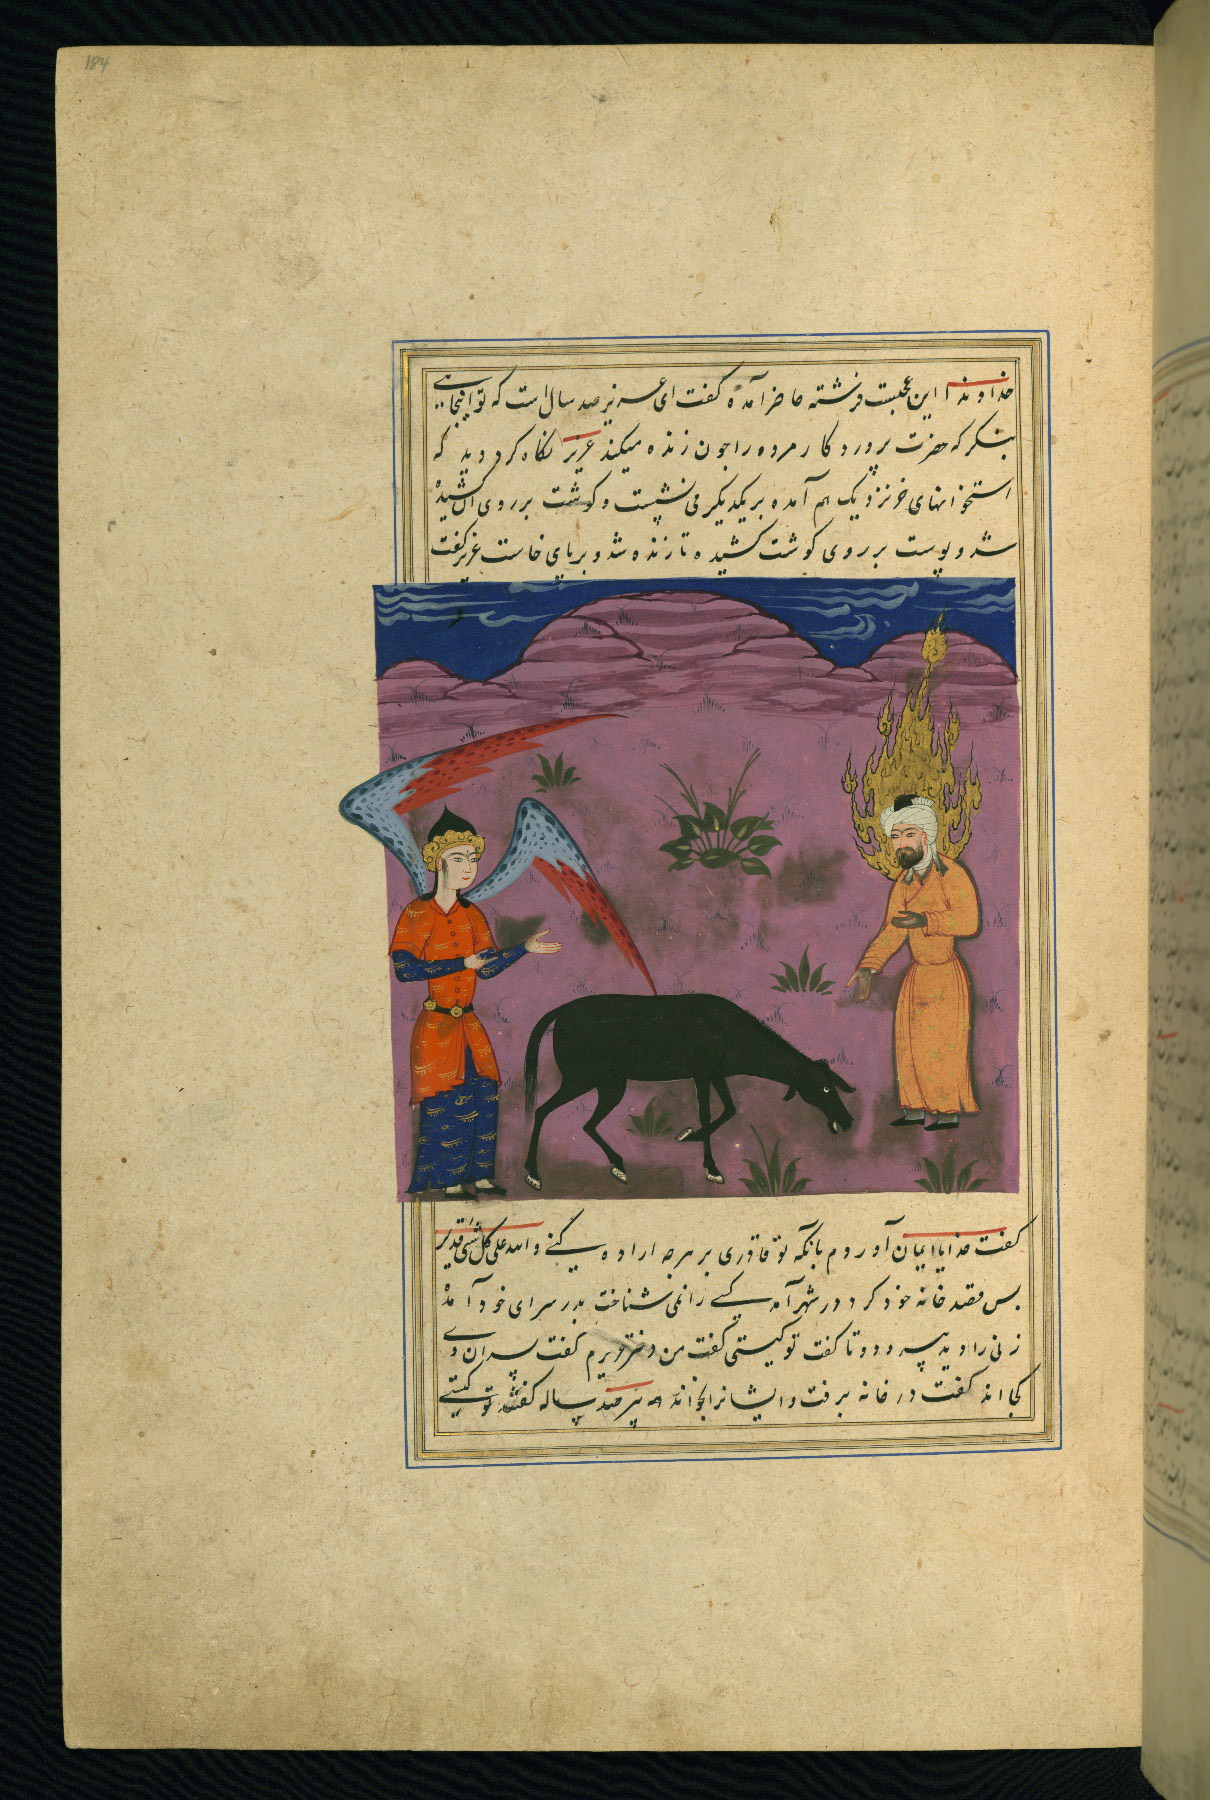 184
خداوندا این عجبست فرشته حاضر آمده گفت ای عزیز صد سال است که تو اینجایی
بنگر که حضرت پروردکار مرده را جون زنده میکند عزیز نکاه کرد دید که
استخوانهای خر نزدیک هم آمده بریکدیکر می نشست و کوشت بر روی آن کشیده
شد و پوست بر روی کوشت کشیده تا زنده شد و بر پای خاست عزیر گفت
کفت خدایا ایمان آوردم بانکه تو قادری بر هرجه اراده کنی والله علی کل شی قدیر
بس قصد خانه خود کرد در شهر آمد کسی را نمی شناخت بدر سرای خود آمد
زنی را دید پیر و دوتا کفت تو کیستی کفت من دختر عزیرم کفت پسران وی
کجااند کفت در خانه برفت و ایشانرا بخواند پیر صد ساله کفتند تو کیستی